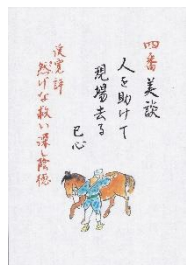 四番 美談
人を助けて
現場去る
巳心
没寛評
然げな救い深し陰徳